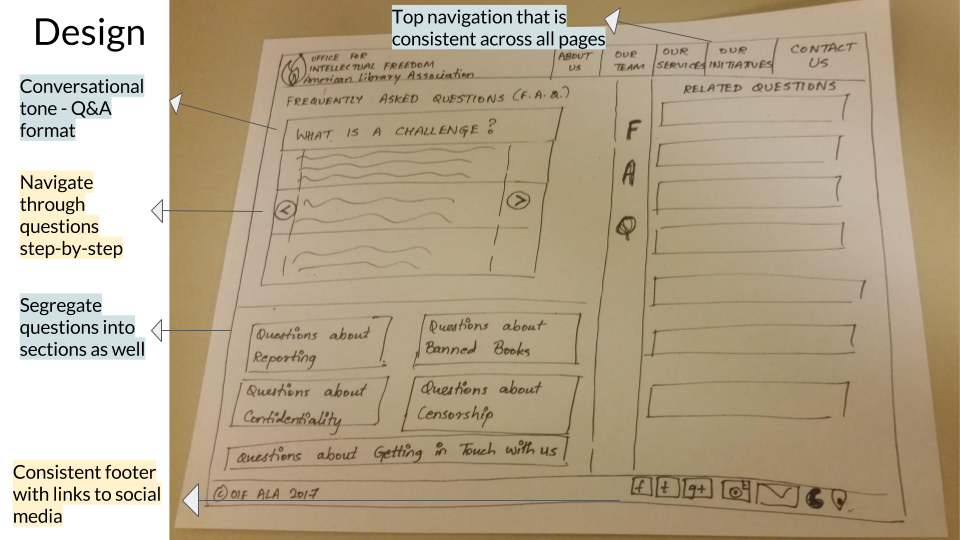 Design
Top navigation that is
consistent across all pages
Conversational
tone - Q&A
format
Navigate
through
questions
step-by-step
Segregate
questions into
sections as well
Consistent footer
with links to social
media
OFFICE FOR
INTELLECTUAL FREEDOM
American Library Association
ABOUT
US
OUR
TEAM
OUR
SERVICES
OUR
INITIATIVES
CONTACT
US
FREQUENTLY ASKED QUESTIONS (F.A.Q.)
WHAT IS A CHALLENGE?
<
>
F
A
Q
RELATED QUESTIONS
Questions about
Reporting
Questions about
Banned Books
Questions about
Confidentiality
Questions about
Censorship
Questions about Getting in Touch with us
© OIF ALA 2017
f t g+